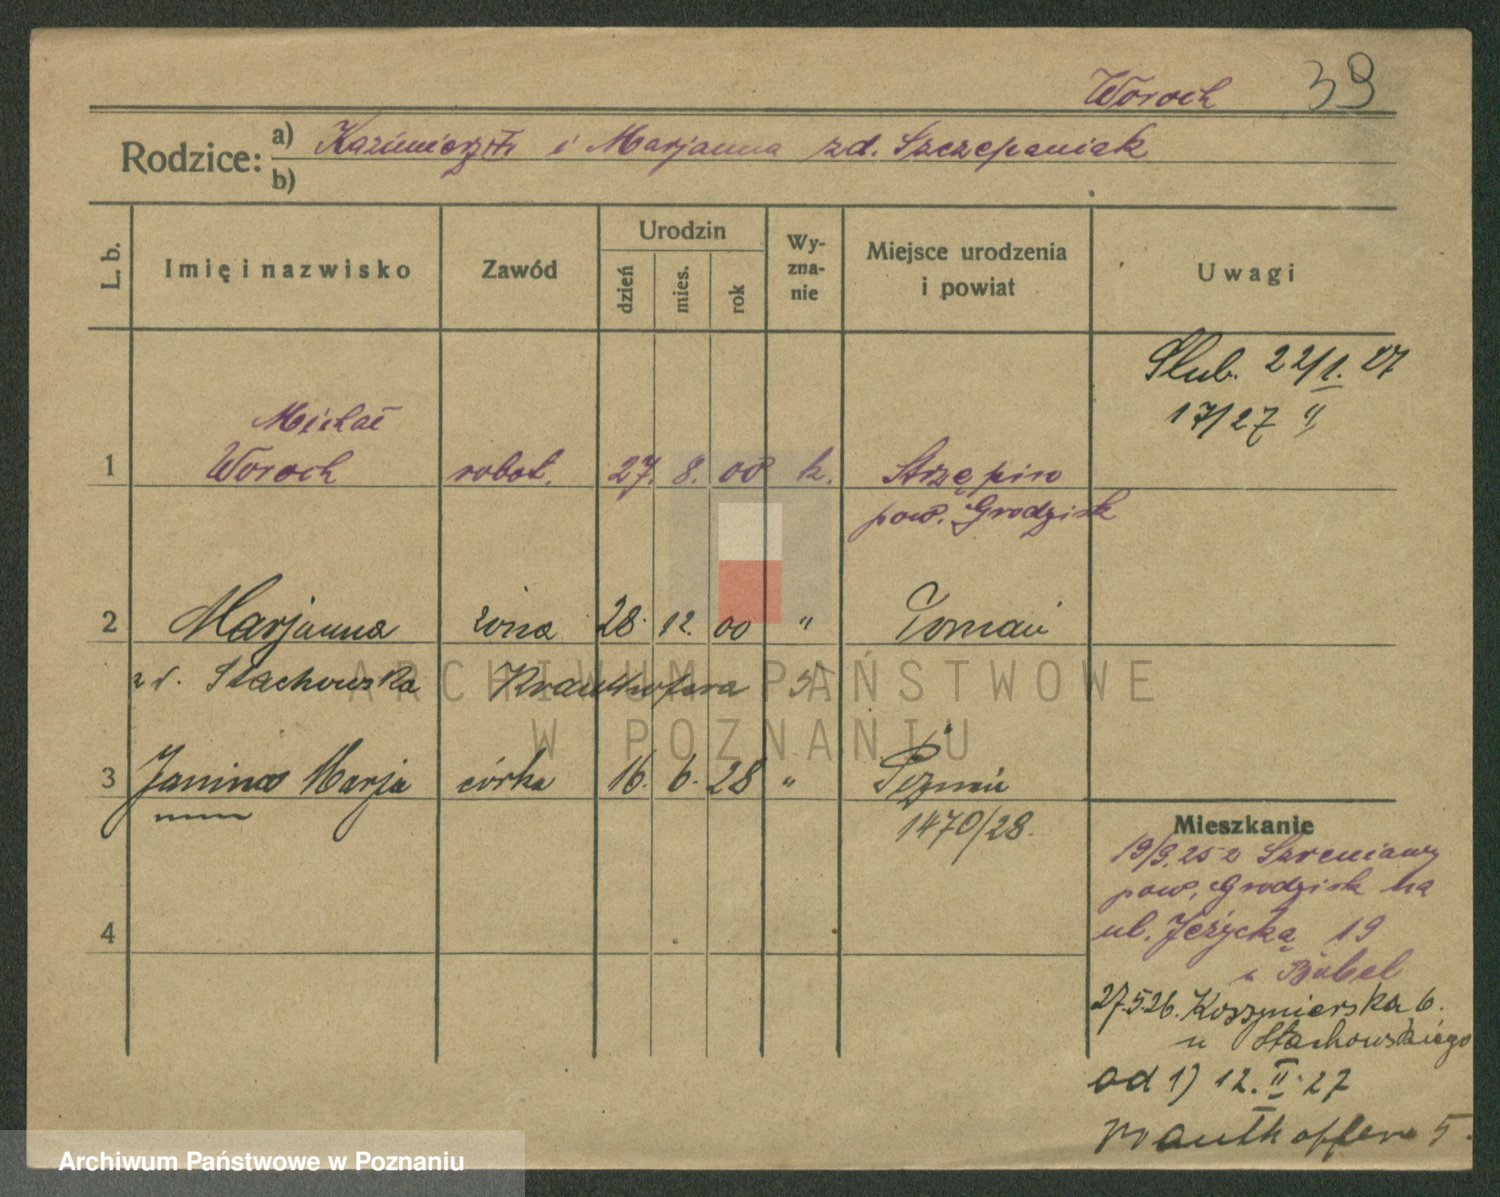 Woroch 39
Rodzice: a) Kazimierz i Marjanna zd. Szczepaniak
b)
L. b. Imię i nazwisko Zawód Urodzin dzień mies. rok Wyzna-nie Miejsce urodzenia i powiat Uwagi
Ślub. 22/1. 27
17/27 II
Michał
1 Woroch robot. 27. 8. 00 k. Strzępiń
pow. Grodzisk
2 Marjanna żona 28. 12. 00 " Poznań
zd. Stachowska Krauthofera 5
3 Janina Marja córka 16. 6. 28 " Poznań
1470/28.
4
Mieszkanie
19/9.25 z Szreniawy
pow. Grodzisk na
ul. Jeżycką 19
u Bäbel
27.5.26. Koszmierska 6.
u Stachowskiego
od 1) 12. II. 27
Krauthoffera 5.
ARCHIWUM PAŃSTWOWE
W POZNANIU
Archiwum Państwowe w Poznaniu